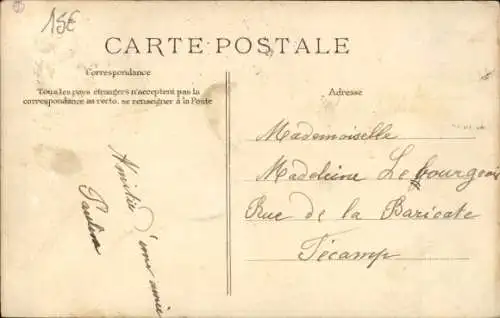 15€
CARTE POSTALE
Correspondance
Tous les pays étrangers n'acceptent pas la
correspondance au recto. se renseigner à la Poste
Amitié d'une amie
Pauline
Adresse
Mademoiselle
Madeleine Lebourgeois
Rue de la Baricate
Fécamp